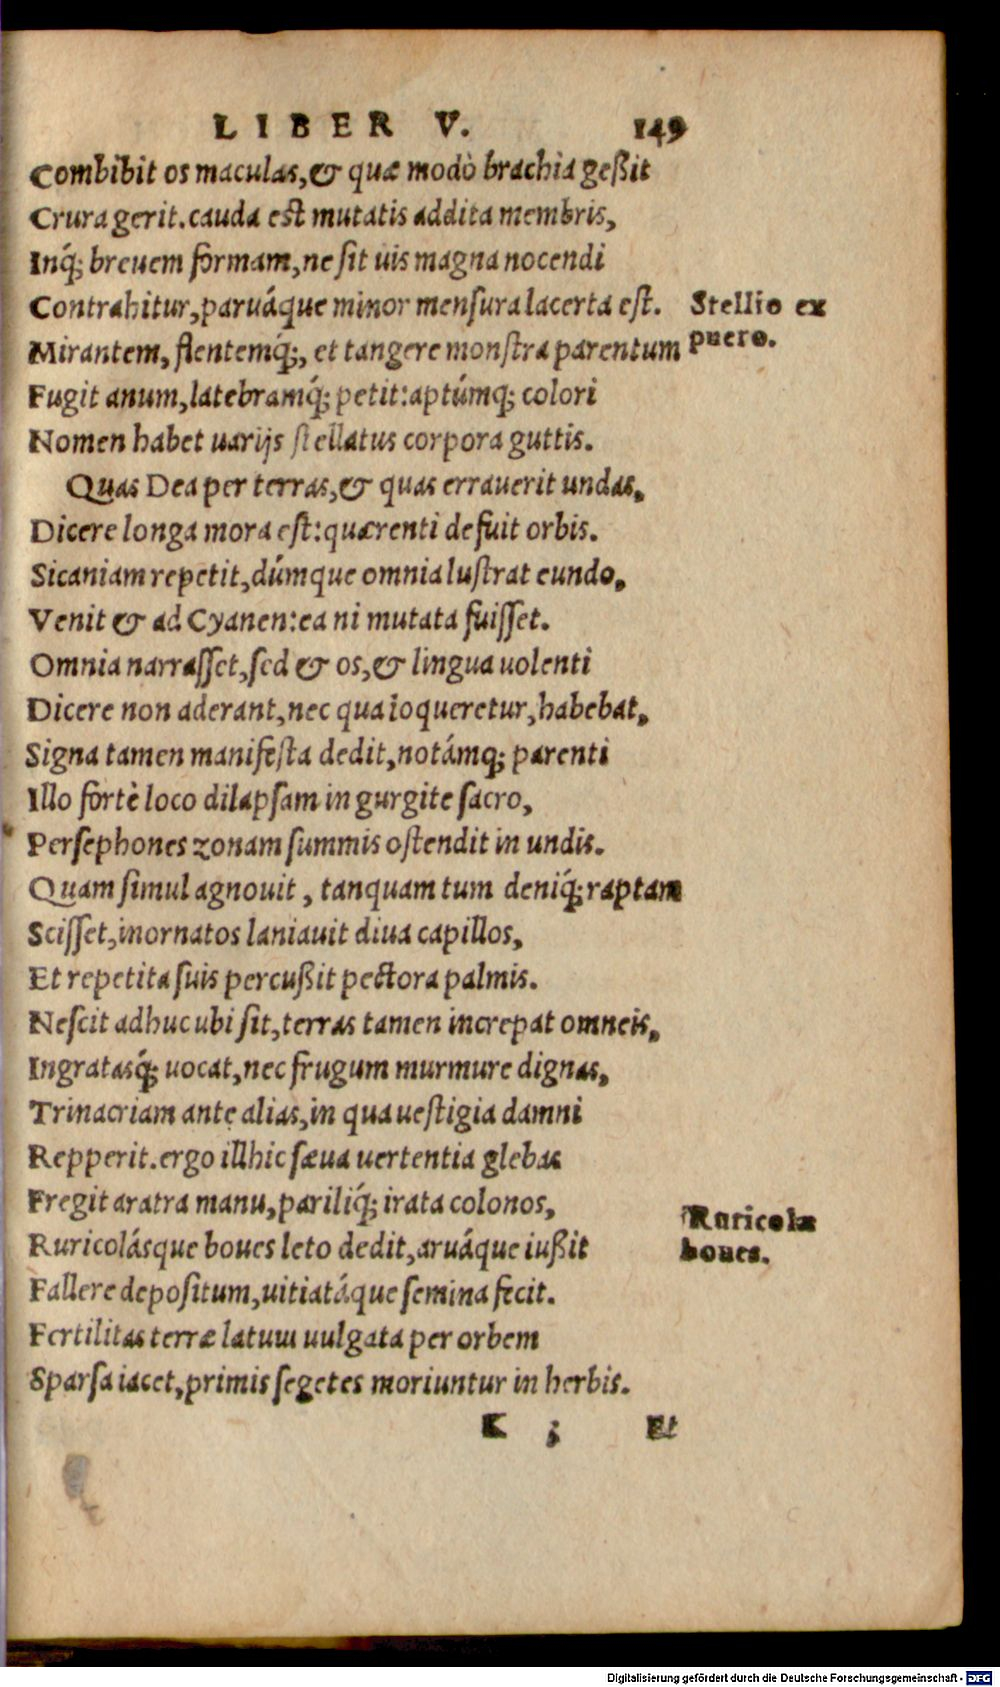 LIBER V. 149
Combibit os maculas, & quæ modò brachia geßit
Crura gerit. cauda est mutatis addita membris,
Inq́; breuem formam, ne sit uis magna nocendi
Contrahitur, paruáque minor mensura lacerta est.
Stellio ex
puero.
Mirantem, flentemq́;, et tangere monstra parentum
Fugit anum, latebramq́; petit: aptúmq; colori
Nomen habet uarijs stellatus corpora guttis.
Quas Dea per terras, & quas errauerit undas,
Dicere longa mora est: quærenti defuit orbis.
Sicaniam repetit, dúmque omnia lustrat eundo,
Venit & ad Cyanen: ea ni mutata fuisset.
Omnia narrasset, sed & os, & lingua uolenti
Dicere non aderant, nec qua loqueretur, habebat,
Signa tamen manifesta dedit, notámq; parenti
Illo fortè loco dilapsam in gurgite sacro,
Persephones zonam summis ostendit in undis.
Quam simul agnouit, tanquam tum deniq́; raptam
Scisset, inornatos laniauit diua capillos,
Et repetita suis percußit pectora palmis.
Nescit adhuc ubi sit, terras tamen increpat omneis,
Ingratasq́; uocat, nec frugum murmure dignas,
Trinacriam ante alias, in qua uestigia damni
Repperit. ergo illhic sæua uertentia glebas
Fregit aratra manu, pariliq́; irata colonos,
Ruricolásque boues leto dedit, aruáque iußit
Ruricolæ
boues.
Fallere depositum, uitiatáque semina fecit.
Fertilitas terræ latuui uulgata per orbem
Sparsa iacet, primis segetes moriuntur in herbis.
K ; Et
Digitalisierung gefördert durch die Deutsche Forschungsgemeinschaft - DFG